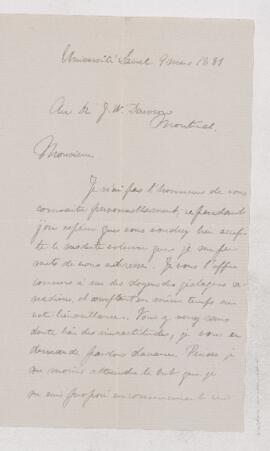 Université Laval 9 mars 1881
Au Dr J. W. Dawson
Montréal.
Monsieur
Je n'ai pas l'honneur de vous
connaitre personnellement, cependant
j'ose espérer que vous voudrez bien accep
ter le modeste volume que je me per
mets de vous adresser. Je vous l'offre
comme à un des doyens des géologues ca
nadiens, et comptant en même temps sur
votre bienveillance. Vous y verrez sans
doute bien des inexactitudes, je vous en
demande pardon d'avance. Puissé je
au moins atteindre le but que je
me suis proposé en commençant ce